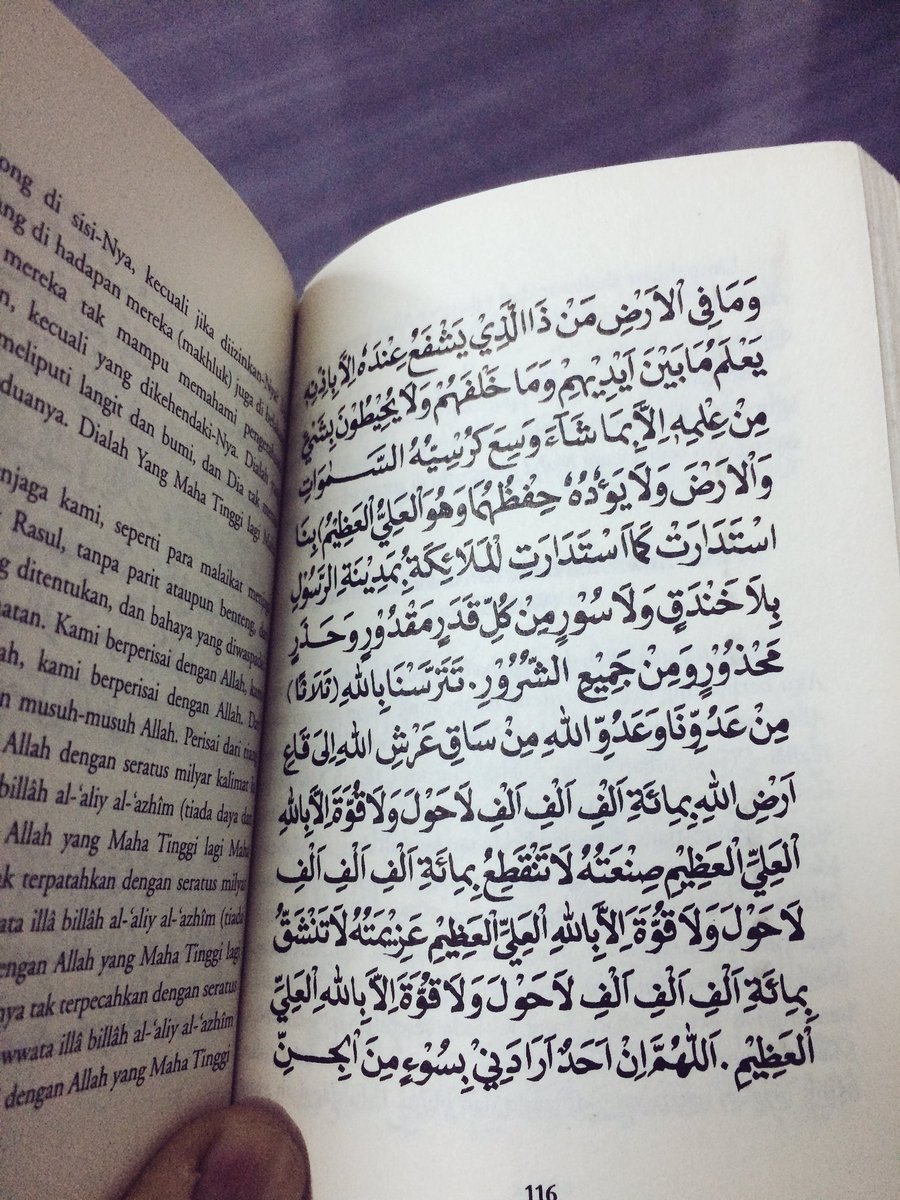 ong di sisi-Nya, kecuali jika diizinkan-Nya
ang di hadapan mereka (makhluk) juga di
mereka tak mampu memahami
n, kecuali yang dikehendaki-Nya.
meliputi langit dan bumi, dan Dia tak
duanya. Dialah Yang Maha Tinggi lagi
njaga kami, seperti para malaikat
Rasul, tanpa parit ataupun benteng,
g ditentukan, dan bahaya yang
hatan. Kami berperisai dengan Allah,
ah, kami berperisai dengan Allah.
n musuh-musuh Allah. Perisai dari
Allah dengan seratus milyar kalimat
billâh al-‘aliy al-‘azhîm (tiada daya
Allah yang Maha Tinggi lagi Maha
ak terpatahkan dengan seratus milyar
ata illâ billâh al-‘aliy al-‘azhîm (tiada
engan Allah yang Maha Tinggi lagi
nya tak terpecahkan dengan seratus
wwata illâ billâh al-‘aliy al-‘azhîm
dengan Allah yang Maha Tinggi
وَمَا فِى اْلاَرْضِ مَنْ ذَا الَّذِيْ يَشْفَعُ عِنْدَهُ اِلاَّ بِاِذْنِهِ
يَعْلَمُ مَا بَيْنَ اَيْدِيْهِمْ وَمَا خَلْفَهُمْ وَلَا يُحِيْطُوْنَ بِشَيْءٍ
مِنْ عِلْمِهِ اِلاَّ بِمَا شَآءَ وَسِعَ كُرْسِيُّهُ السَّمٰوَاتِ
وَاْلاَرْضَ وَلَا يَؤُدُهُ حِفْظُهُمَا وَهُوَ الْعَلِيُّ الْعَظِيْمُ) بِنَا
اسْتَدَارَتْ كَمَا اسْتَدَارَتِ الْمَلَائِكَةُ بِمَدِيْنَةِ الرَّسُوْلِ
بِلَا خَنْدَقٍ وَلَا سُوْرٍ مِنْ كُلِّ قَدَرٍ مَقْدُوْرٍ وَحَذَرٍ
مَحْذُوْرٍ وَمِنْ جَمِيْعِ الشُّرُوْرِ. تَتَرَّسْنَا بِاللهِ (ثَلَاثًا)
مِنْ عَدُوِّنَا وَعَدُوِّ اللهِ مِنْ سَاقِ عَرْشِ اللهِ اِلَى قَاعِ
اَرْضِ اللهِ بِمِائَةِ اَلْفِ اَلْفِ اَلْفِ لَا حَوْلَ وَلَا قُوَّةَ اِلاَّ بِاللهِ
الْعَلِيِّ الْعَظِيْمِ صِنْعَتُهُ لَا تَنْقَطِعُ بِمِائَةِ اَلْفِ اَلْفِ اَلْفِ
لَا حَوْلَ وَلَا قُوَّةَ اِلاَّ بِاللهِ الْعَلِيِّ الْعَظِيْمِ عَزِيْمَتُهُ لَا تَنْشَقُّ
بِمِائَةِ اَلْفِ اَلْفِ اَلْفِ لَا حَوْلَ وَلَا قُوَّةَ اِلاَّ بِاللهِ الْعَلِيِّ
الْعَظِيْمِ. اَللّٰهُمَّ اِنْ اَحَدٌ اَرَادَنِيْ بِسُوْءٍ مِنَ الْجِنِّ
116